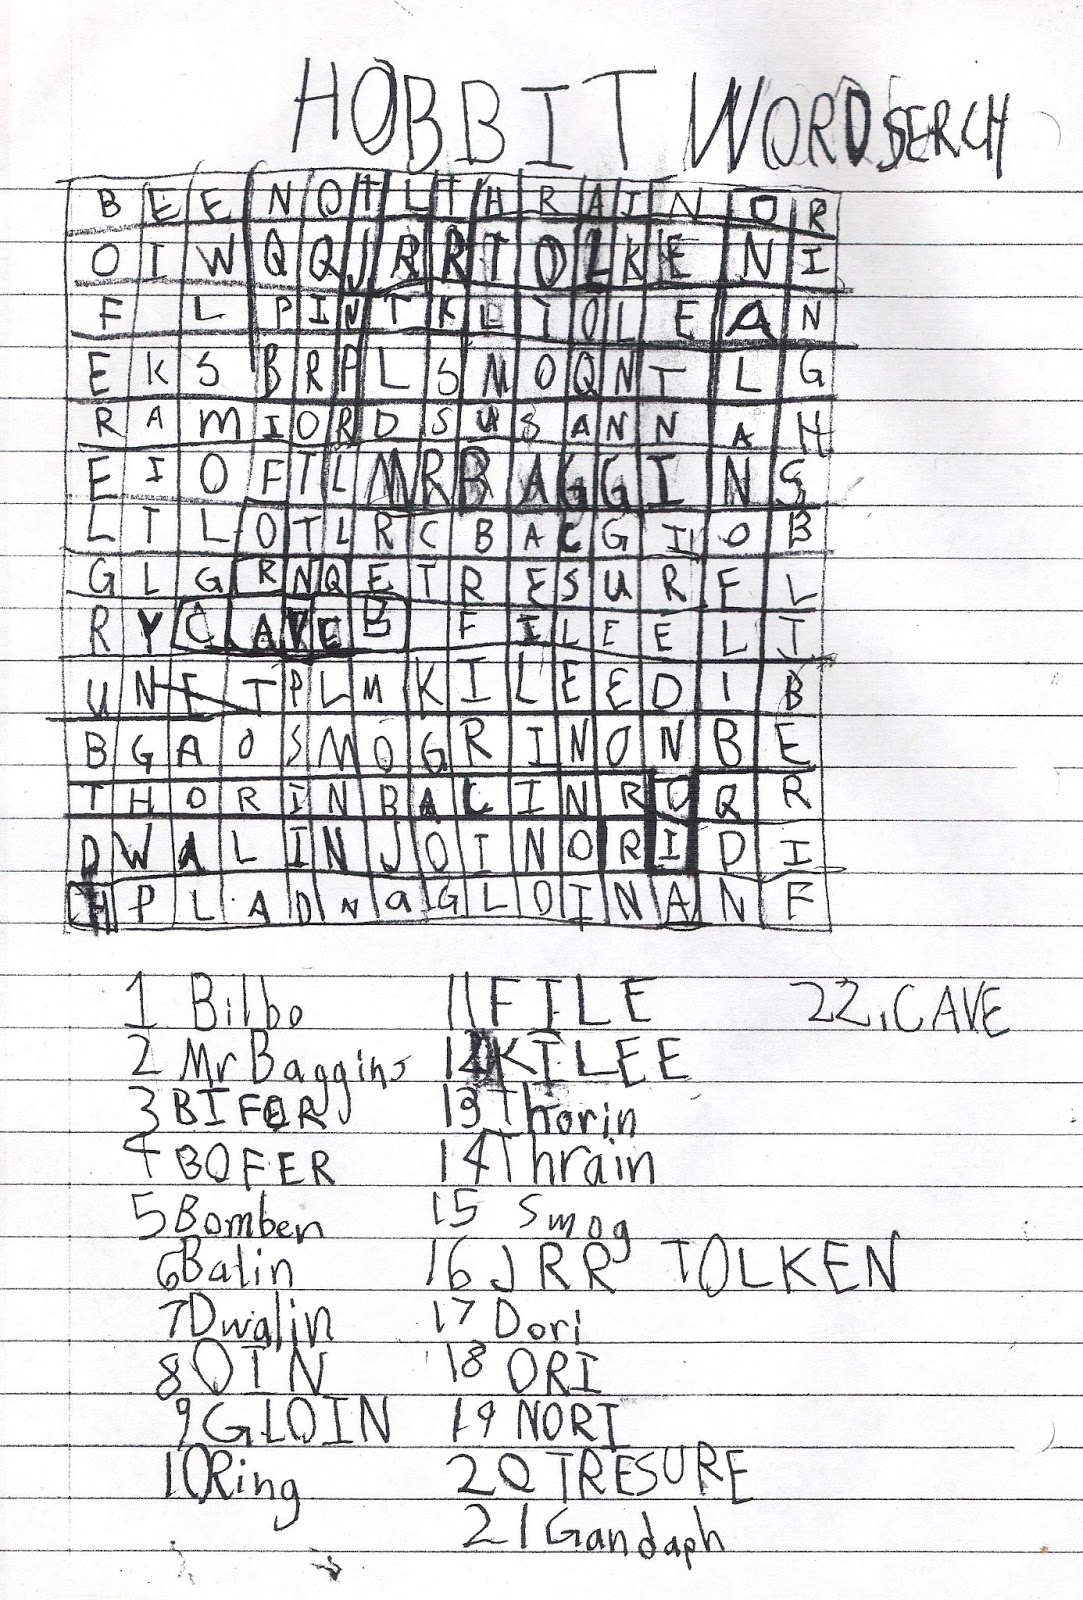 HOBBIT WORDSERCH
B E E N O T L T H R A I N O R
O I W Q Q J R R T O L K E N I
F L P I N T K L I O L E A N
E K S B R P L S M O Q N T L G
R A M I O R D S U S A N N A H
E I O F T L M R B A G G I N S
L T L O T L R C B A C G I O B
G L G R N Q E T R E S U R F L
R Y C A V E B F I L E E L I
U N E T P L M K I L E E D I B
B G A O S M O G R I N O N B E
T H O R I N B A L I N R O Q R
D W A L I N J O I N O R I D I
H P L A D N a G L O I N A N F
1 Bilbo 11 FILE 22. CAVE
2 Mr Baggins 12 KILEE
3 BIFER 13 Thorin
4 BOFER 14 Thrain
5 Bomben 15 Smog
6 Balin 16 JRR TOLKEN
7 Dwalin 17 Dori
8 OIN 18 ORI
9 GLOIN 19 NORI
10 Ring 20 TRESURE
21 Gandaph